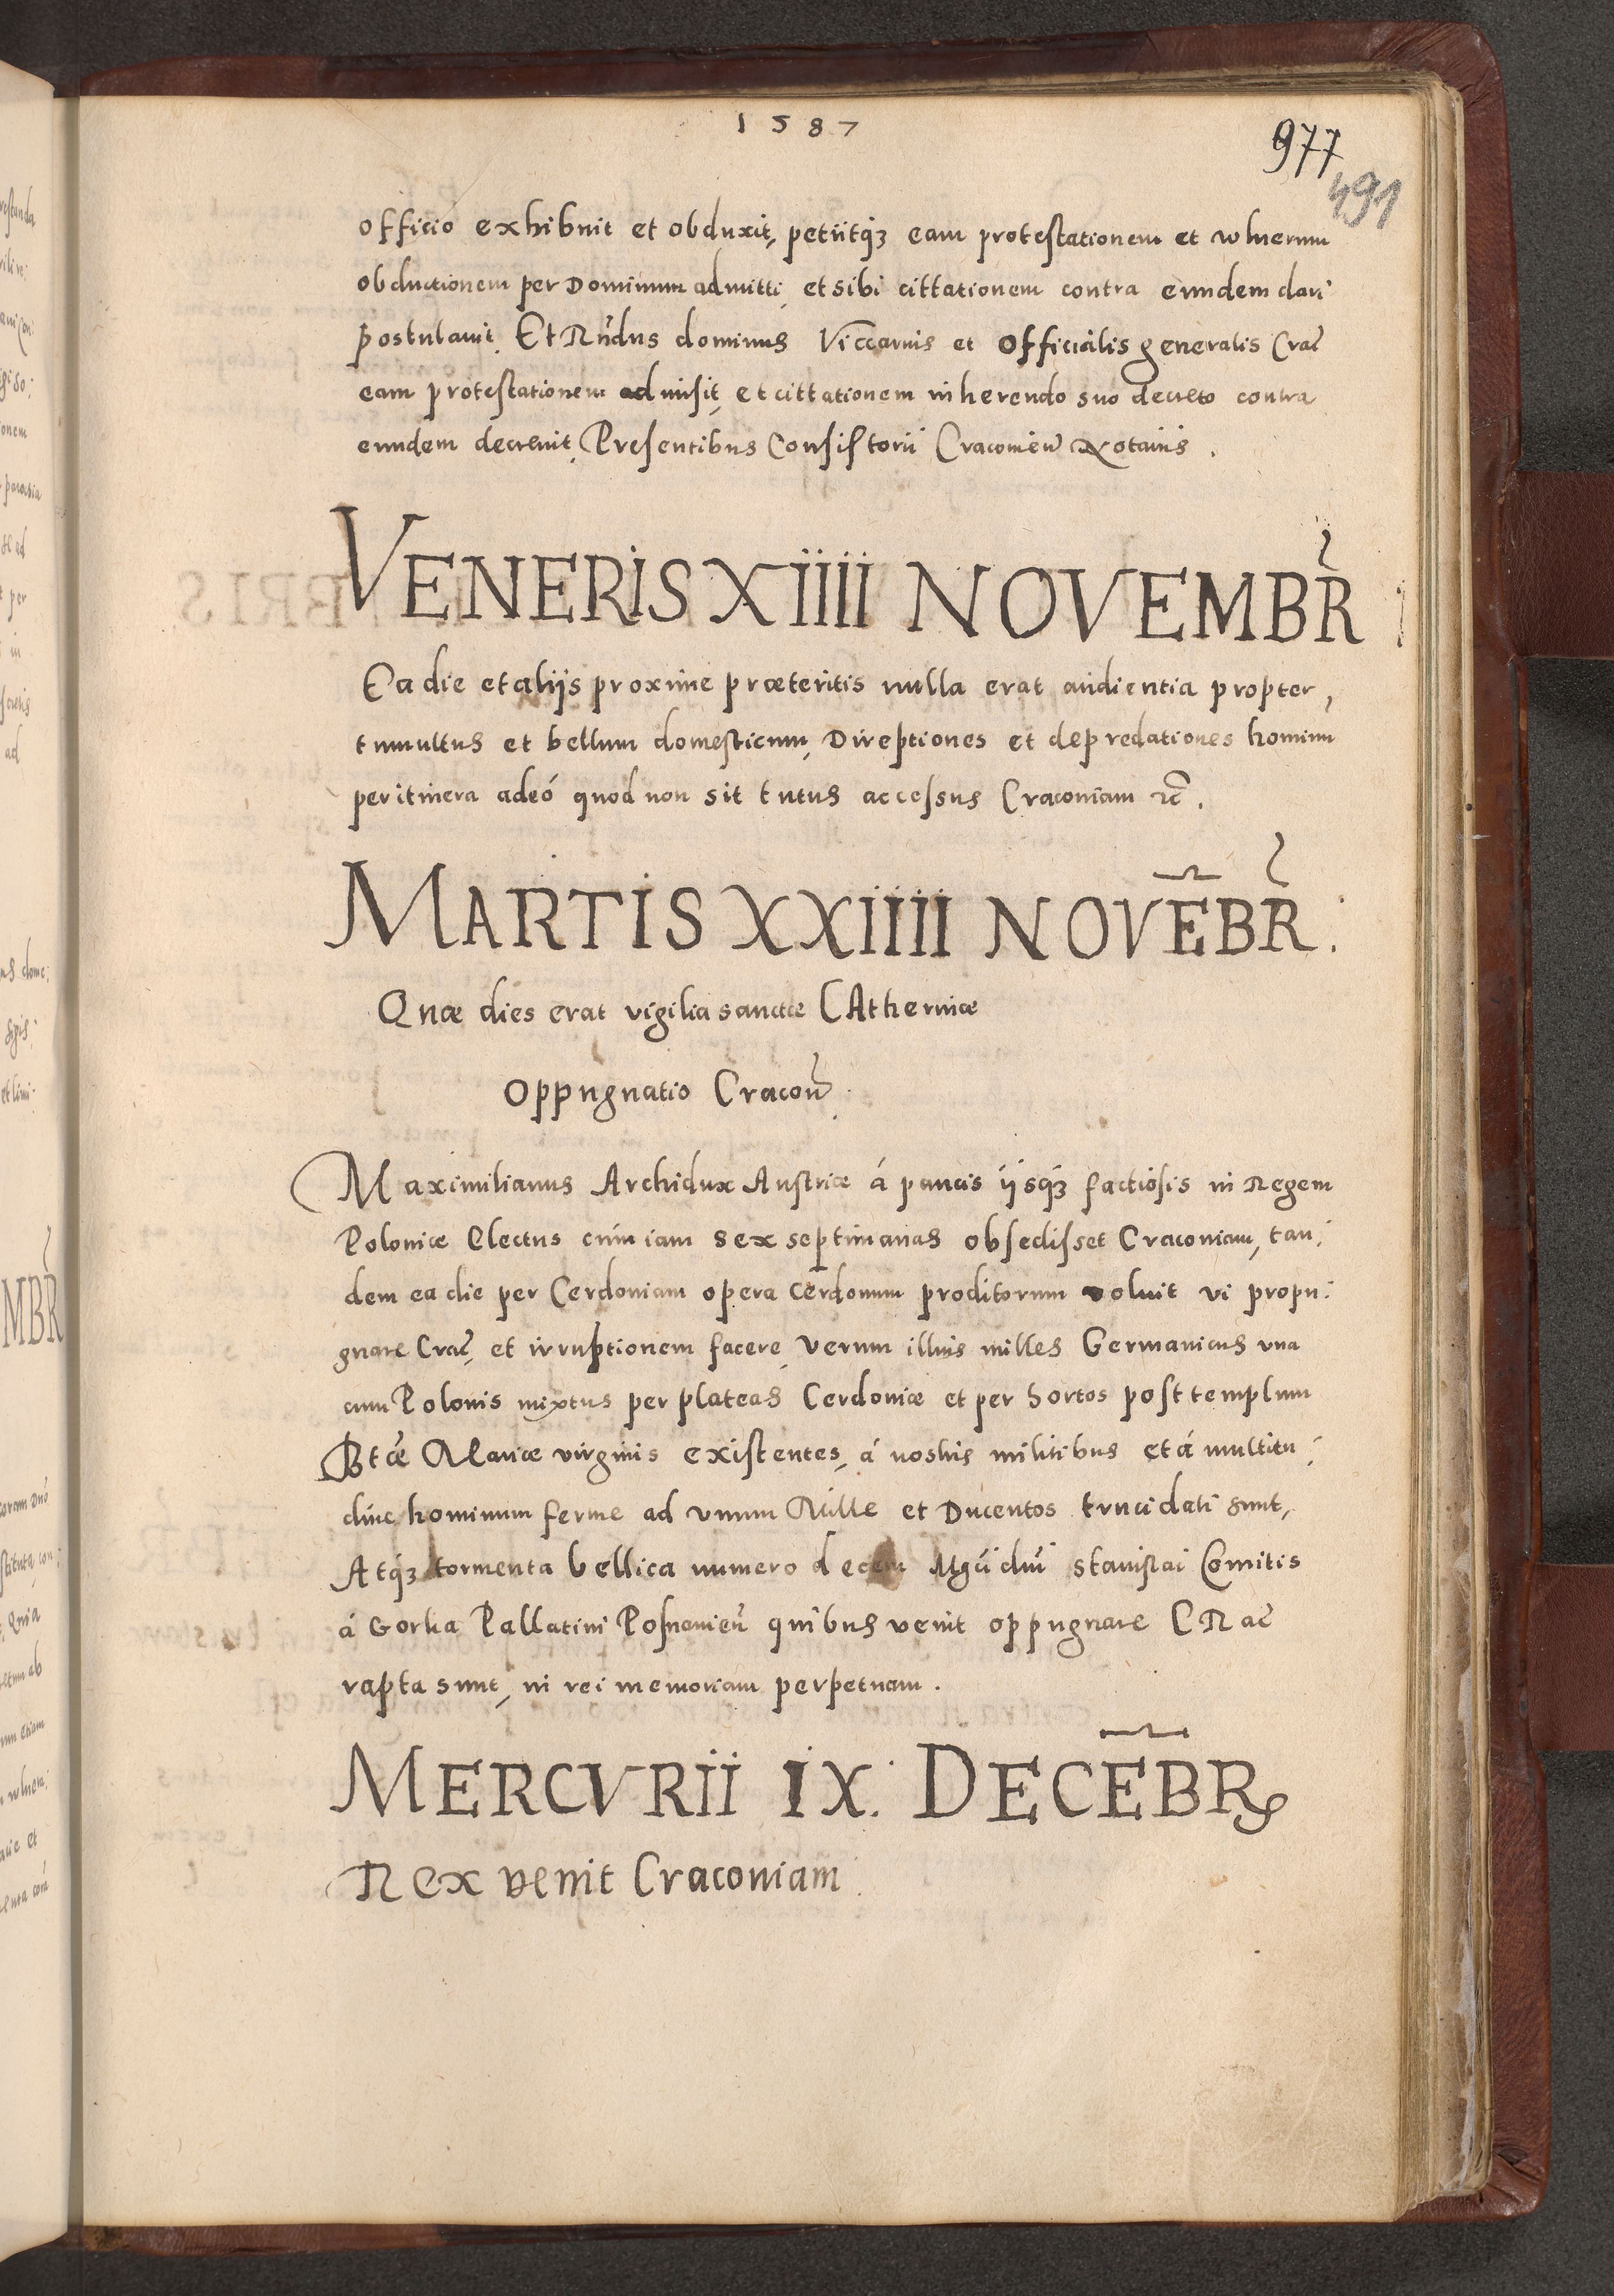 1587
977
491
officio exhibuit et obduxit, petiitq₃ eam protestationem et vulnerum
obductionem per Dominum admitti, et sibi cittationem contra eundem dari
postulavit. Et Rñdus dominus Viccarius et Officialis generalis Crac̃
eam protestationem admisit, et cittationem inherendo suo decreto contra
eundem decrevit, Presentibus Consistorii Cracovien̄ Notariis.
VENERIS XIIII NOVEMBR̃
Ea die et aliijs proxime præteritis nulla erat audientia propter,
tumultus et bellum domesticum, Direptiones et depredationes hominū
per itinera adeó quod non sit tutus accessus Cracoviam ꝛc̃.
MARTIS XXIIII NOVĒBR̃.
Quæ dies erat vigilia sanctæ CAtherinæ
Oppugnatio Cracov̄.
Maximilianus Archidux Austriæ á paucis iisq₃ factiosis in Regem
Poloniæ Electus cúm iam sex septimanas obsedisset Cracoviam, tan:
dem ea die per Cerdoniam opera Cerdonum proditorum voluit vi propu:
gnare Crac̃, et irruptionem facere, verum illius milles Germanicus una
cum Polonis mixtus per plateas Cerdoniæ et per hortos post templum
Btæ̃ Mariæ virginis existentes, á nostris militibus et á multitu:
dine hominum ferme ad unum Mille et Ducentos trucidati sunt,
Atq₃ tormenta bellica numero decem Mgci dni Stanislai Comitis
á Gorka Pallatini Posnanien̄ quibus venit oppugnare CRac̃
rapta sunt, in rei memoriam perpetuam.
MERCVRII IX. DECĒBR
Rex venit Cracoviam.